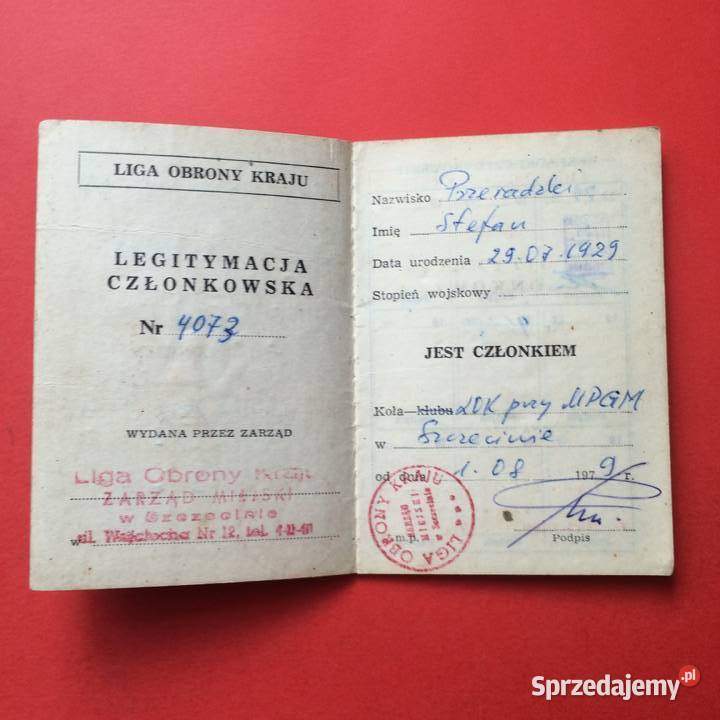 LIGA OBRONY KRAJU
LEGITYMACJA
CZŁONKOWSKA
Nr 4073
WYDANA PRZEZ ZARZĄD
Liga Obrony Kraju
ZARZĄD MIEJSKI
w Szczecinie
w ul. Nr 12, tel.
Nazwisko
Imię Stefan
Data urodzenia 29.07.1929
Stopień wojskowy
JEST CZŁONKIEM
Koła—klubu LOK przy MPGM
w Szczecinie
od dnia 1.08 1979 r.
LIGA OBRONY KRAJU
ZARZĄD
MIEJSKI
w Szczecinie
m.p.
Podpis
Sprzedajemy.pl